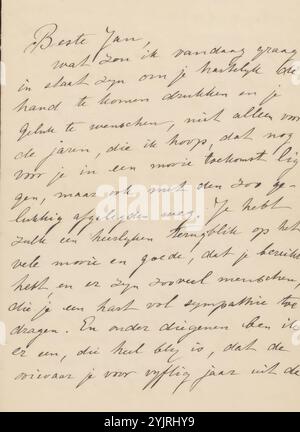 Beste Jan,
wat zou ik vandaag graag
in staat zyn om je hartelyk de
hand te komen drukken en je
geluk te wenschen, niet alleen voor
de jaren, die ik hoop, dat nog
voor je in een mooie toekomst lig
gen, maar ook met den zoo ge-
lukkig afgelegden weg. Je hebt
zulk een heerlyken terugblik op het
vele mooie en goede, dat je bereikt
hebt en er zyn zooveel menschen,
die je een hart vol sympathie toe
dragen. En onder diegenen ben ik
er een, die heel bly is, dat de
ooievaar je voor vyftig jaar uit de
alamy
Image ID: 2YJRHY9
www.alamy.com